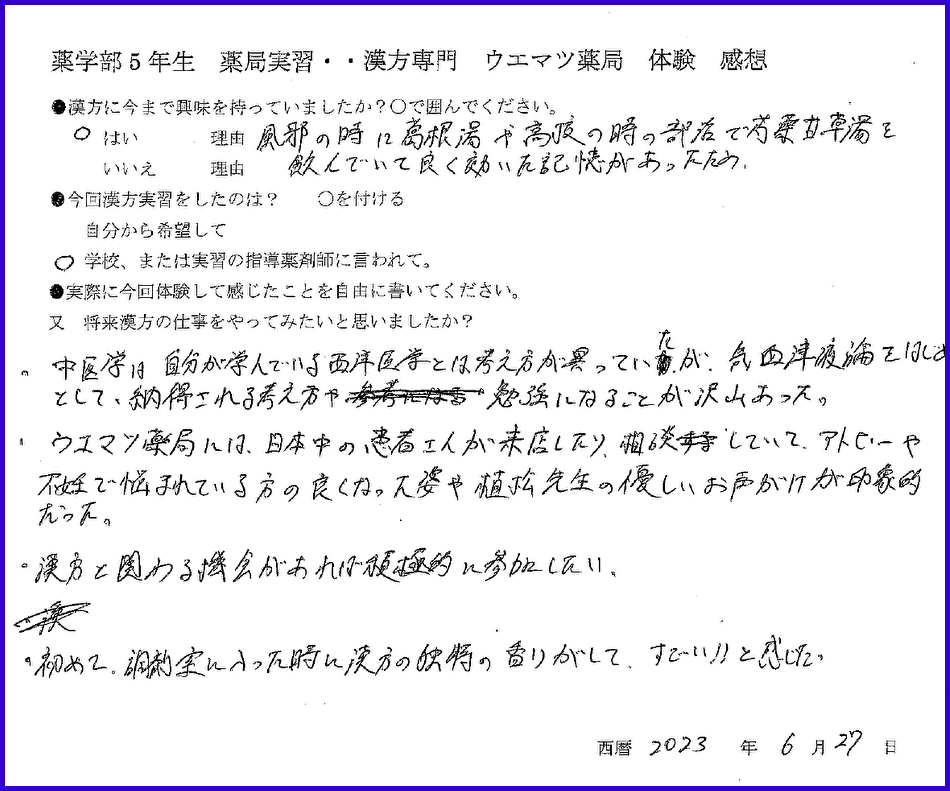 薬学部5年生　薬局実習・・漢方専門　ウエマツ薬局　体験　感想
●漢方に今まで興味を持っていましたか？〇で囲んでください。
○ はい　理由 風邪の時に葛根湯や高校の時の部活で芍薬甘草湯を
いいえ　理由 飲んでいて良く効いた記憶があったため。
●今回漢方実習をしたのは？　〇を付ける
自分から希望して
○ 学校、または実習の指導薬剤師に言われて。
●実際に今回体験して感じたことを自由に書いてください。
又　将来漢方の仕事をやってみたいと思いましたか？
。中医学は自分が学んでいる西洋医学とは考え方が異っていたが、気血津液論をはじめ
として、納得される考え方や 勉強になることが沢山あった。
・ウエマツ薬局には、日本中の患者さんが来店したり、相談していて、アトピーや
不妊で悩まれている方の良くなった姿や植松先生の優しいお声がけが印象的
だった。
・漢方と関わる機会があれば積極的に参加したい。
漢
・初めて、調剤室に入った時に漢方の独特の香りがして、すごい!!と感じた。
西暦 2023 年 6 月 27 日